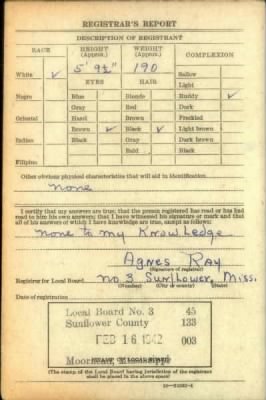 REGISTRAR'S REPORT
DESCRIPTION OF REGISTRANT
RACE HEIGHT (Approx.) WEIGHT (Approx.) COMPLEXION
5' 9½" 190
White ✓ EYES HAIR Sallow
Light
Negro Blue Blonde Ruddy ✓
Gray Red Dark
Oriental Hazel Brown Freckled
Brown ✓ Black ✓ Light brown
Indian Black Gray Dark brown
Bald Black
Filipino
Other obvious physical characteristics that will aid in identification
None
I certify that my answers are true; that the person registered has read or has had
read to him his own answers; that I have witnessed his signature or mark and that
all of his answers of which I have knowledge are true, except as follows:
None to my Knowledge
Agnes Ray
(Signature of registrar)
Registrar for Local Board No. 3 Sunflower, Miss.
(Number) (City or county) (State)
Date of registration
Local Board No. 3 45
Sunflower County 133
FEB 16 1942 003
Moorhead, Mississippi
(STAMP OF LOCAL BOARD)
(The stamp of the Local Board having jurisdiction of the registrant
shall be placed in the above space)